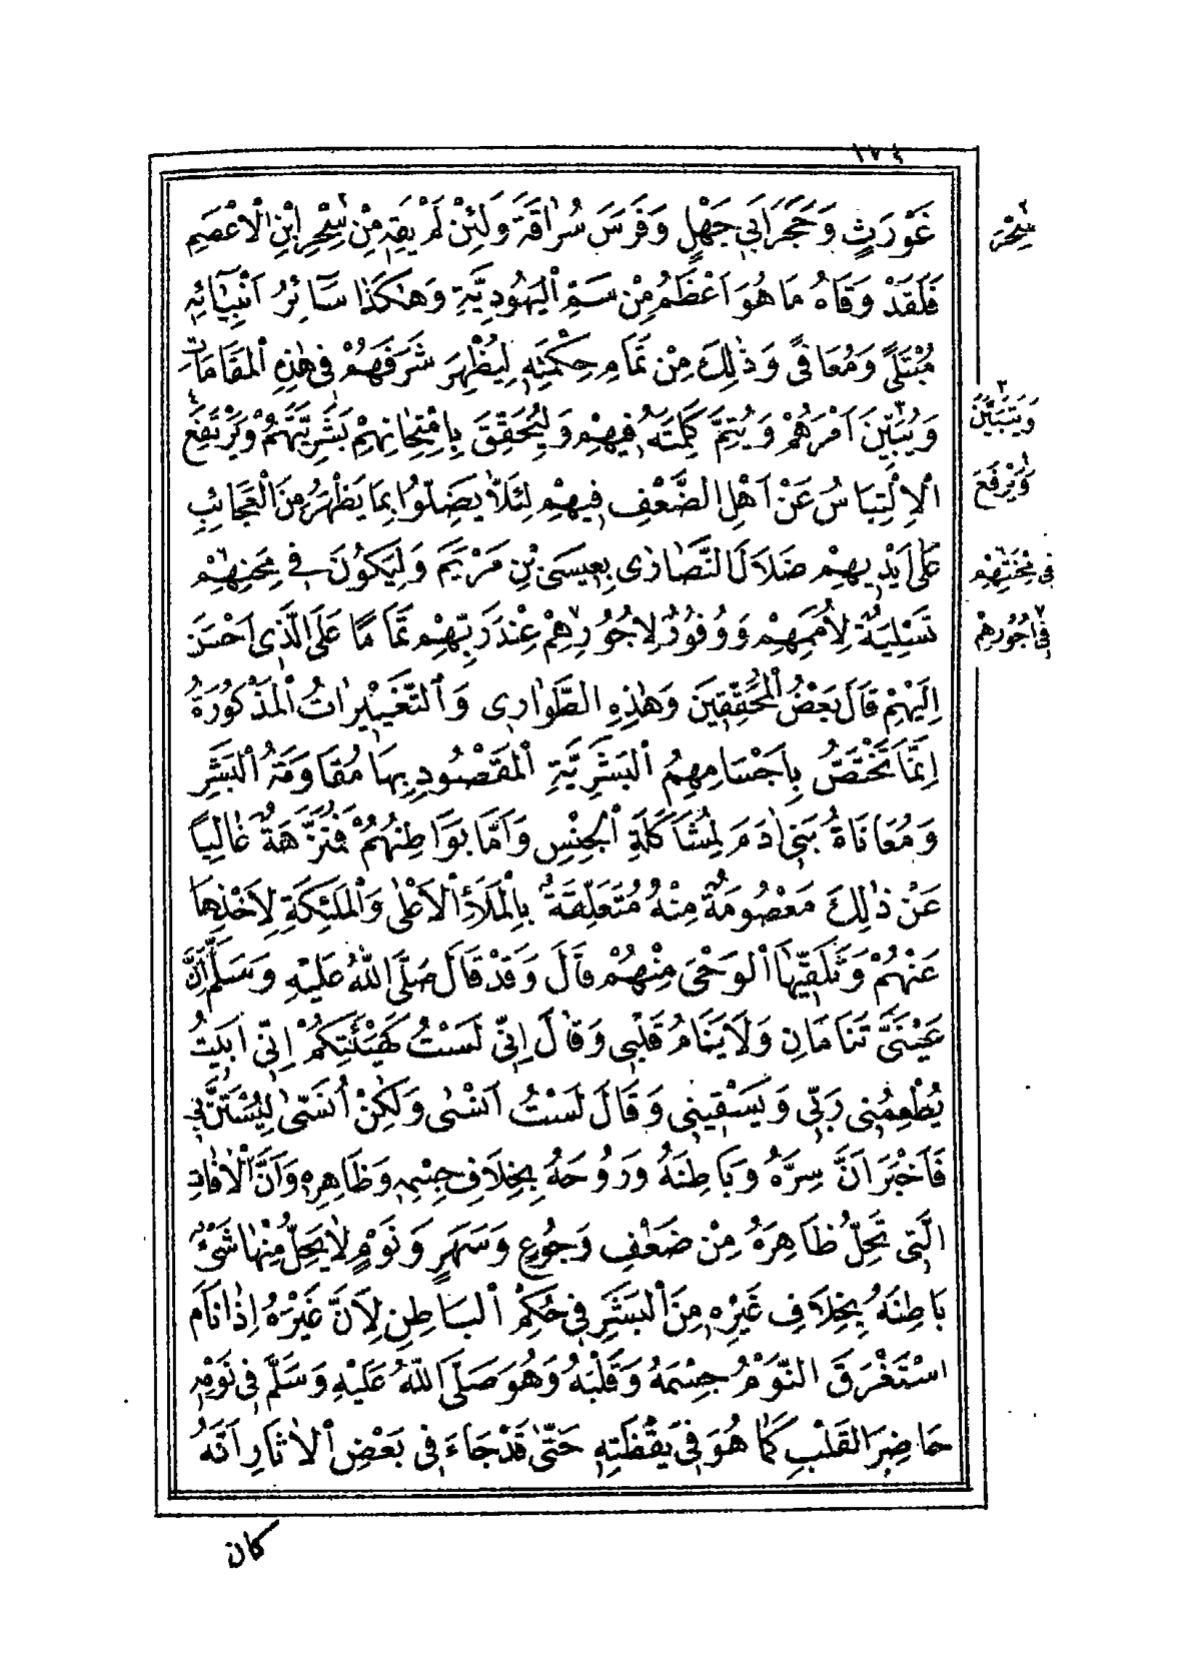 ١٧٤
غَوْرَثٍ وَحَجَرَ اَبِي جَهْلٍ وَفَرَسَ سُرَاقَةَ وَلَئِنْ لَمْ يَقِهِ مِنْ سِحْرِ ابْنِ الْاَعْصَمِ
فَلَقَدْ وَقَاهُ مَا هُوَ اَعْظَمُ مِنْ سَمِّ الْيَهُودِيَّةِ وَهٰكَذَا سَآئِرُ اَنْبِيَآئِهِ
مُبْتَلًى وَمُعَافًى وَذٰلِكَ مِنْ تَمَامِ حِكْمَتِهِ لِيُظْهِرَ شَرَفَهُمْ فِى هٰذِهِ الْمَقَامَاتِ
وَيُبَيِّنَ اَمْرَهُمْ وَيُتِمَّ كَلِمَتَهُ فِيهِمْ وَلِيُحَقِّقَ بِامْتِحَانِهِمْ بَشَرِيَّتَهُمْ وَيَرْتَفِعَ
الْاِلْتِبَاسُ عَنْ اَهْلِ الضَّعْفِ فِيهِمْ لِئَلَّا يَضِلُّوا بِمَا يَظْهَرُ مِنَ الْعَجَائِبِ
عَلٰى اَيْدِيهِمْ ضَلَالَ النَّصَارٰى بِعِيسَى بْنِ مَرْيَمَ وَلِيَكُونَ فِى مِحَنِهِمْ
تَسْلِيَةٌ لِاُمَمِهِمْ وَوُفُورٌ لِاُجُورِهِمْ عِنْدَ رَبِّهِمْ تَمَامًا عَلَى الَّذِى اَحْسَنَ
اِلَيْهِمْ قَالَ بَعْضُ الْمُحَقِّقِينَ وَهٰذِهِ الطَّوَارِى وَالتَّغْيِيْرَاتُ الْمَذْكُورَةُ
اِنَّمَا تَخْتَصُّ بِاَجْسَامِهِمُ الْبَشَرِيَّةِ الْمَقْصُودِ بِهَا مُقَاوَمَةُ الْبَشَرِ
وَمُعَانَاةُ بَنِى اٰدَمَ لِمُشَاكَلَةِ الْجِنْسِ وَاَمَّا بَوَاطِنُهُمْ فَمُنَزَّهَةٌ غَالِبًا
عَنْ ذٰلِكَ مَعْصُومَةٌ مِنْهُ مُتَعَلِّقَةٌ بِالْمَلَاِ الْاَعْلٰى وَالْمَلٰئِكَةِ لِاَخْذِهَا
عَنْهُمْ وَتَلَقِّيهَا الْوَحْىَ مِنْهُمْ قَالَ وَقَدْ قَالَ صَلَّى اللّٰهُ عَلَيْهِ وَسَلَّمَ اِنَّ
عَيْنَىَّ تَنَامَانِ وَلَا يَنَامُ قَلْبِى وَقَالَ اِنِّى لَسْتُ كَهَيْئَتِكُمْ اِنِّى اَبِيتُ
يُطْعِمُنِى رَبِّى وَيَسْقِينِى وَقَالَ لَسْتُ اَنْسٰى وَلٰكِنْ اُنَسّٰى لِيُسْتَنَّ بِى
فَاَخْبَرَ اَنَّ سِرَّهُ وَبَاطِنَهُ وَرُوحَهُ بِخِلَافِ جِسْمِهِ وَظَاهِرِهِ وَاَنَّ الْاٰفَاتِ
الَّتِى تَحِلُّ ظَاهِرَهُ مِنْ ضَعْفٍ وَجُوعٍ وَسَهَرٍ وَنَوْمٍ لَا يَحِلُّ مِنْهَا شَىْءٌ
بَاطِنَهُ بِخِلَافِ غَيْرِهِ مِنَ الْبَشَرِ فِى حُكْمِ الْبَاطِنِ لِاَنَّ غَيْرَهُ اِذَا نَامَ
اسْتَغْرَقَ النَّوْمُ جِسْمَهُ وَقَلْبَهُ وَهُوَ صَلَّى اللّٰهُ عَلَيْهِ وَسَلَّمَ فِى نَوْمِهِ
حَاضِرُ الْقَلْبِ كَمَا هُوَ فِى يَقْظَتِهِ حَتّٰى قَدْ جَاءَ فِى بَعْضِ الْاٰثَارِ اَنَّهُ
كان
٢ سِحْرَ
٣ وَيَتَبَيَّنَ
٤ وَيَرْفَعَ
فِى مِحْنَتِهِمْ
٧ فِى اُجُورِهِمْ